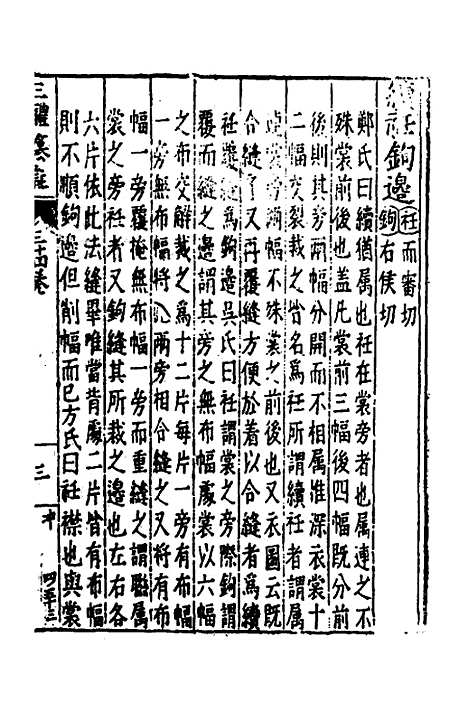 續衽鉤邊衽而審切
鉤右侯切
鄭氏曰續猶属也衽在裳旁者也属連之不
殊裳前後也盖凡裳前三幅後四幅既分前
後則其旁兩幅分開而不相属惟深衣裳十
二幅交裂裁之皆名爲衽所謂續衽者謂属
連裳旁兩幅不殊裳之前後也又衣圖云既
合縫了又再覆縫方便於着以合縫者爲續
衽覆縫爲鉤邊吳氏曰衽謂裳之旁際鉤謂
覆而縫之邊謂其旁之無布幅處裳以六幅
之布交解裁之爲十二片每片一旁有布幅
一旁無布幅將兩旁相合縫之又將有布
幅一旁覆掩無布幅一旁而重縫之謂聮属
裳之旁衽者又鉤縫其所裁之邊也左右各
六片依此法縫畢唯當背處二片皆有布幅
則不順鉤邊但削幅而已方氏曰衽襟也與裳
三禮
三十四卷
三
四